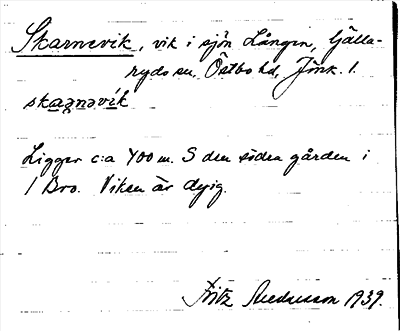 Skarnevik, vik i sjön Lången, Gälla-
ryds sn, Östbo hd, Jönk. l.
skagnǝvik
Ligger c:a 400 m. S den södra gården i
1 Bro. Viken är dyig.
Fritz Andersson 1939.